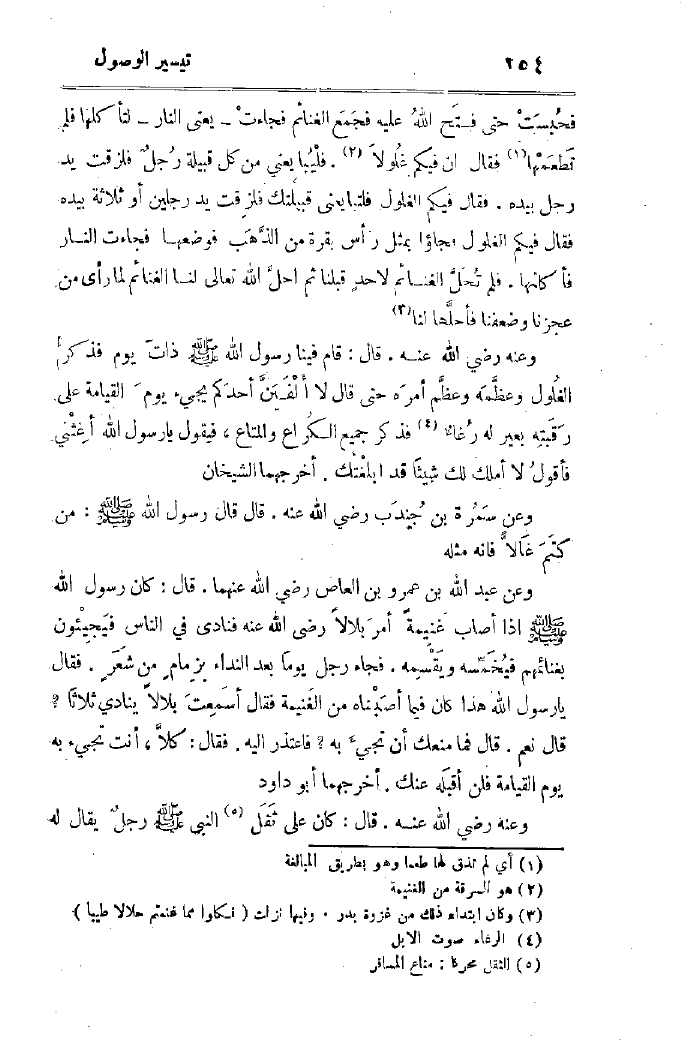 ٢٥٤ تيسير الوصول
فحُبِسَتْ حتى فتحَ اللهُ عليه فجمَع الغنائم فجاءتْ ـ يعنى النار ـ لتأكلها فلم
تَطعَمْها (١) فقال ان فيكم غُلولاً (٢) . فلْيُبايعني من كل قبيلة رُجلٌ فلزقت يد
رجل بيده . فقال فيكم الغلول فلتبايعنى قبيلتك فلزقت يد رجلين أو ثلاثة بيده
فقال فيكم الغلول فجاؤا بمثل رأس بقرة من الذَّهَب فوضعها فجاءت النار
فأكلتها . فلم تُحلَّ الغنائم لاحدٍ قبلنا ثم احلَّ الله تعالى لنا الغنائم لما رأى من
عجزنا وضعفنا فأحلَّها لنا (٣)
وعنه رضي الله عنه . قال : قام فينا رسول الله ﷺ ذاتَ يوم فذكرَ
الغُلول وعظَّمَه وعظَّم أمرَه حتى قال لا أُلْفَيَنَّ أحدَكم يجيء يومَ القيامة على
رَقَبَتِه بعير له رُغاءٌ (٤) فذكر جميع الكُراع والمتاع ، فيقول يارسول الله أغِثْني
فأقولُ لا أملك لك شيئًا قد ابلَغْتك . أخرجهما الشيخان
وعن سَمُرة بن جُندَب رضي الله عنه . قال قال رسول الله ﷺ : من
كتَمَ غَالاًّ فانه مثله
وعن عبد الله بن عمرو بن العاص رضي الله عنهما . قال : كان رسول الله
ﷺ اذا أصاب غنيمةً أمرَ بلالاً رضي الله عنه فنادى في الناس فيَجيْئون
بغنائمهم فيُخَمِّسه ويَقْسِمه . فجاء رجل يومًا بعد النداء بزِمامٍ من شعَرٍ . فقال
يارسول الله هذا كان فيما أصَبْناه من الغَنيمة فقال أسَمِعتَ بلالاً ينادي ثلاثا ؟
قال نعم . قال فما منعك أن تجيءَ به ؟ فاعتذر اليه . فقال : كلاَّ ، أنت تجيء به
يوم القيامة فلن أقبَلَه عنك . أخرجهما أبو داود
وعنه رضي الله عنه . قال : كان على ثَقَل (٥) النبي ﷺ رجلٌ يقال له
(١) أي لم تذق لها طعما وهو بطريق المبالغة
(٢) هو السرقة من الغنيمة
(٣) وكان ابتداء ذلك من غزوة بدر . وفيها نزلت ( فكلوا مما غنمتم حلالا طيبا )
(٤) الرغاء صوت الابل
(٥) الثقل محركا : متاع المسافر